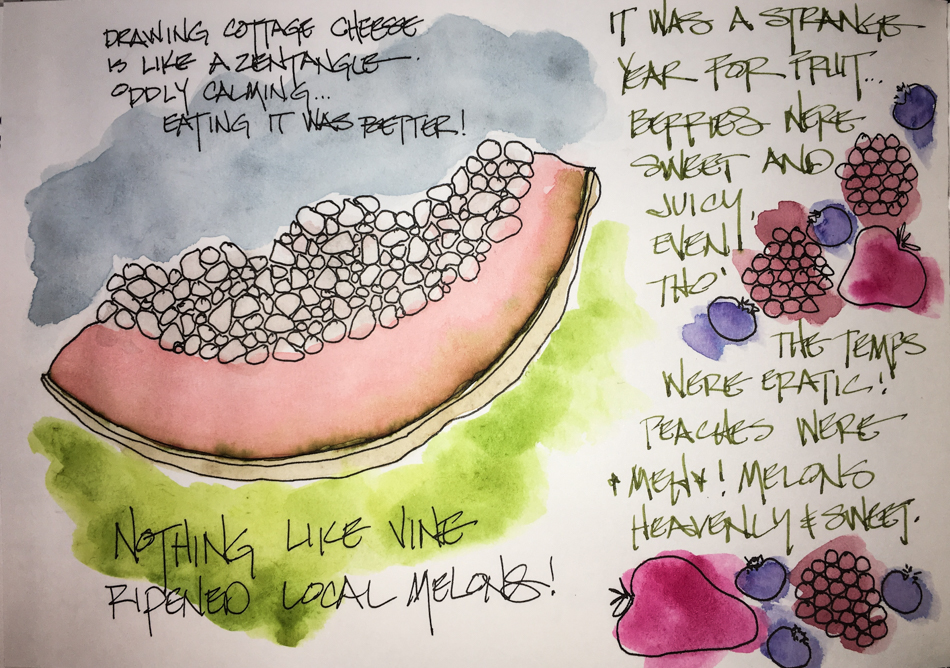 DRAWING COTTAGE CHEESE
IS LIKE A ZENTANGLE.
ODDLY CALMING...
EATING IT WAS BETTER!
NOTHING LIKE VINE
RIPENED LOCAL MELONS!
IT WAS A STRANGE
YEAR FOR FRUIT...
BERRIES WERE
SWEET AND
JUICY,
EVEN
THO'
THE TEMPS
WERE ERATIC!
PEACHES WERE
*MEH*! MELONS
HEAVENLY & SWEET.